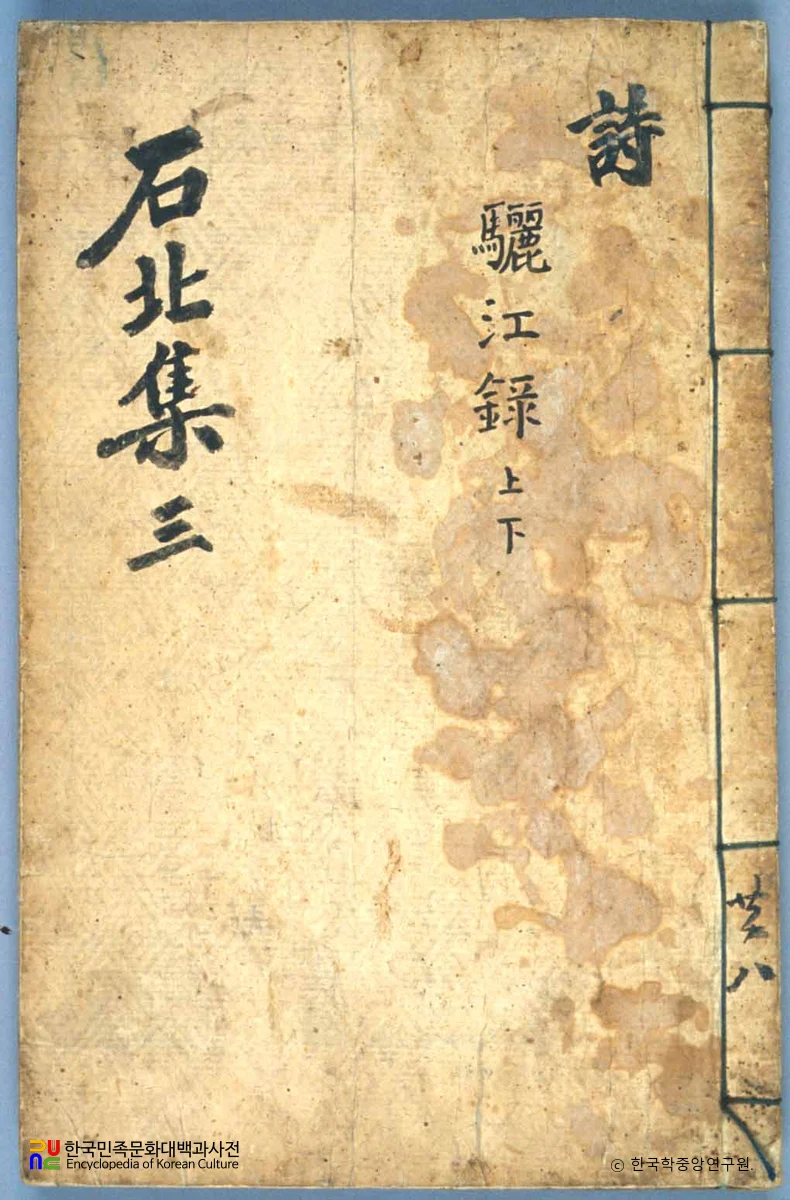 詩
驪江錄 上下
石北集 三
共八
한국민족문화대백과사전
Encyclopedia of Korean Culture
© 한국학중앙연구원